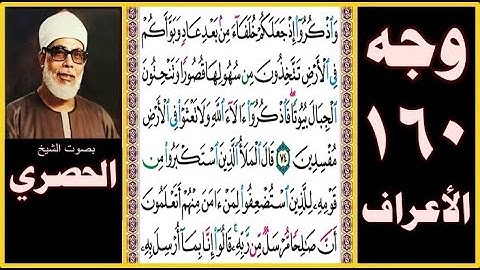 وجه
١٦٠
الأعراف
بصوت الشيخ
الحصري
وَٱذۡكُرُوٓاْ إِذۡ جَعَلَكُمۡ خُلَفَآءَ مِنۢ بَعۡدِ عَادٖ وَبَوَّأَكُمۡ
فِي ٱلۡأَرۡضِ تَتَّخِذُونَ مِن سُهُولِهَا قُصُورٗا وَتَنۡحِتُونَ
ٱلۡجِبَالَ بُيُوتٗاۖ فَٱذۡكُرُوٓاْ ءَالَآءَ ٱللَّهِ وَلَا تَعۡثَوۡاْ فِي ٱلۡأَرۡضِ
مُفۡسِدِينَ ٧٤ قَالَ ٱلۡمَلَأُ ٱلَّذِينَ ٱسۡتَكۡبَرُواْ مِن
قَوۡمِهِۦ لِلَّذِينَ ٱسۡتُضۡعِفُواْ لِمَنۡ ءَامَنَ مِنۡهُمۡ أَتَعۡلَمُونَ
أَنَّ صَٰلِحٗا مُّرۡسَلٞ مِّن رَّبِّهِۦۚ قَالُوٓاْ إِنَّا بِمَآ أُرۡسِلَ بِهِۦ